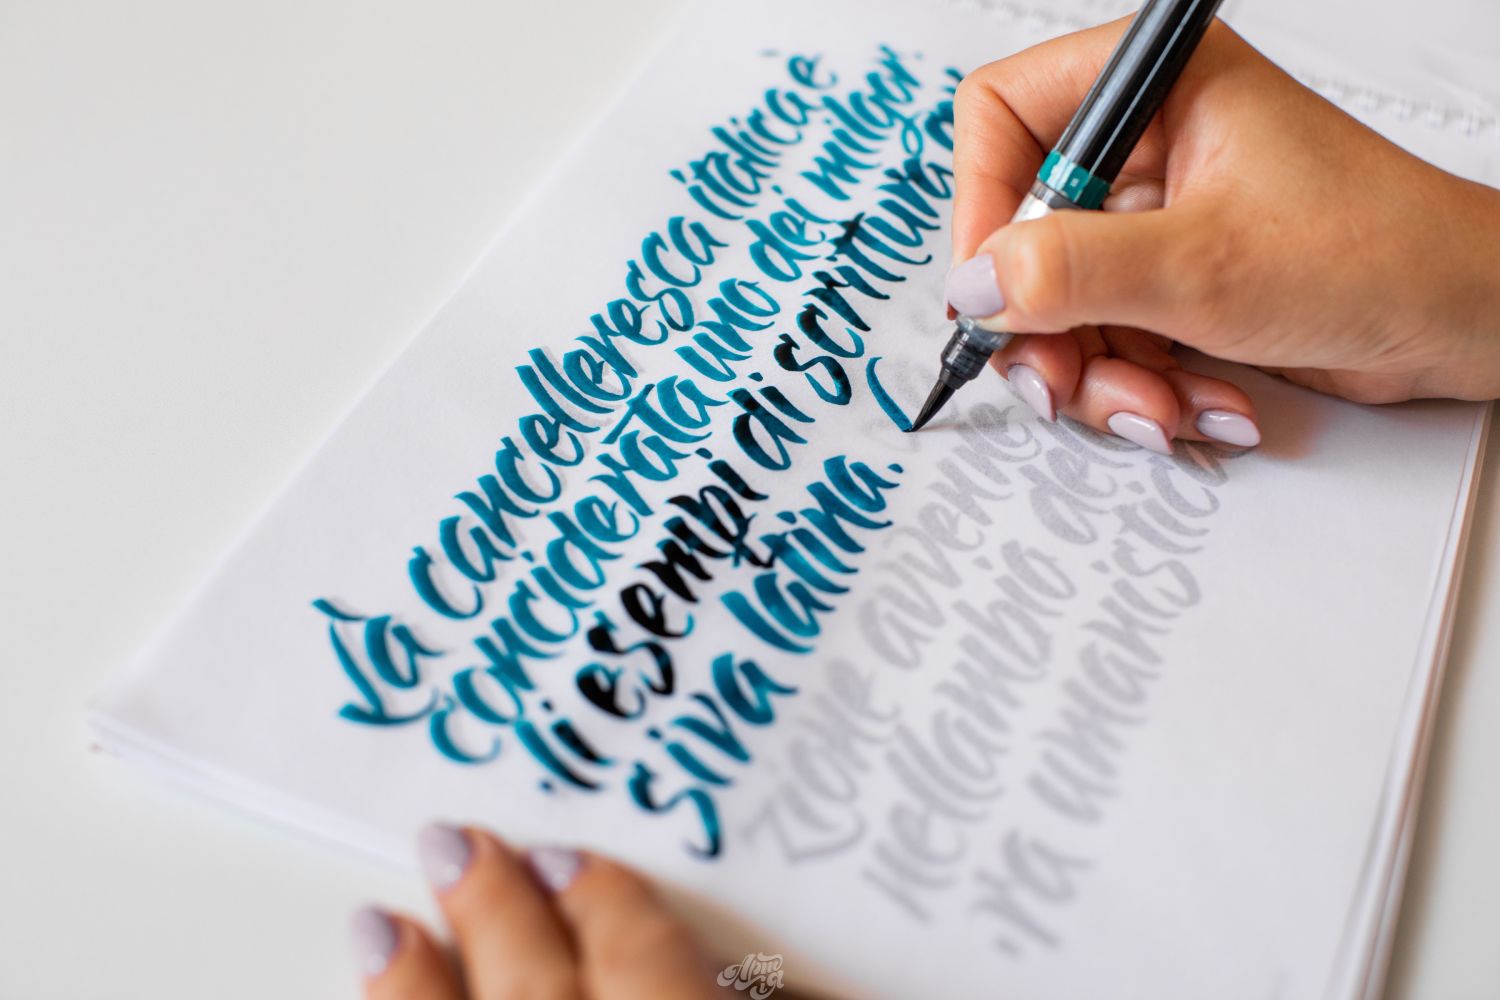 La cancelleresca italica è
conciderata uno dei miglor.
.li esempi di scrittura
siva latina.
zione avvenne
nellambio
.ra umanistica